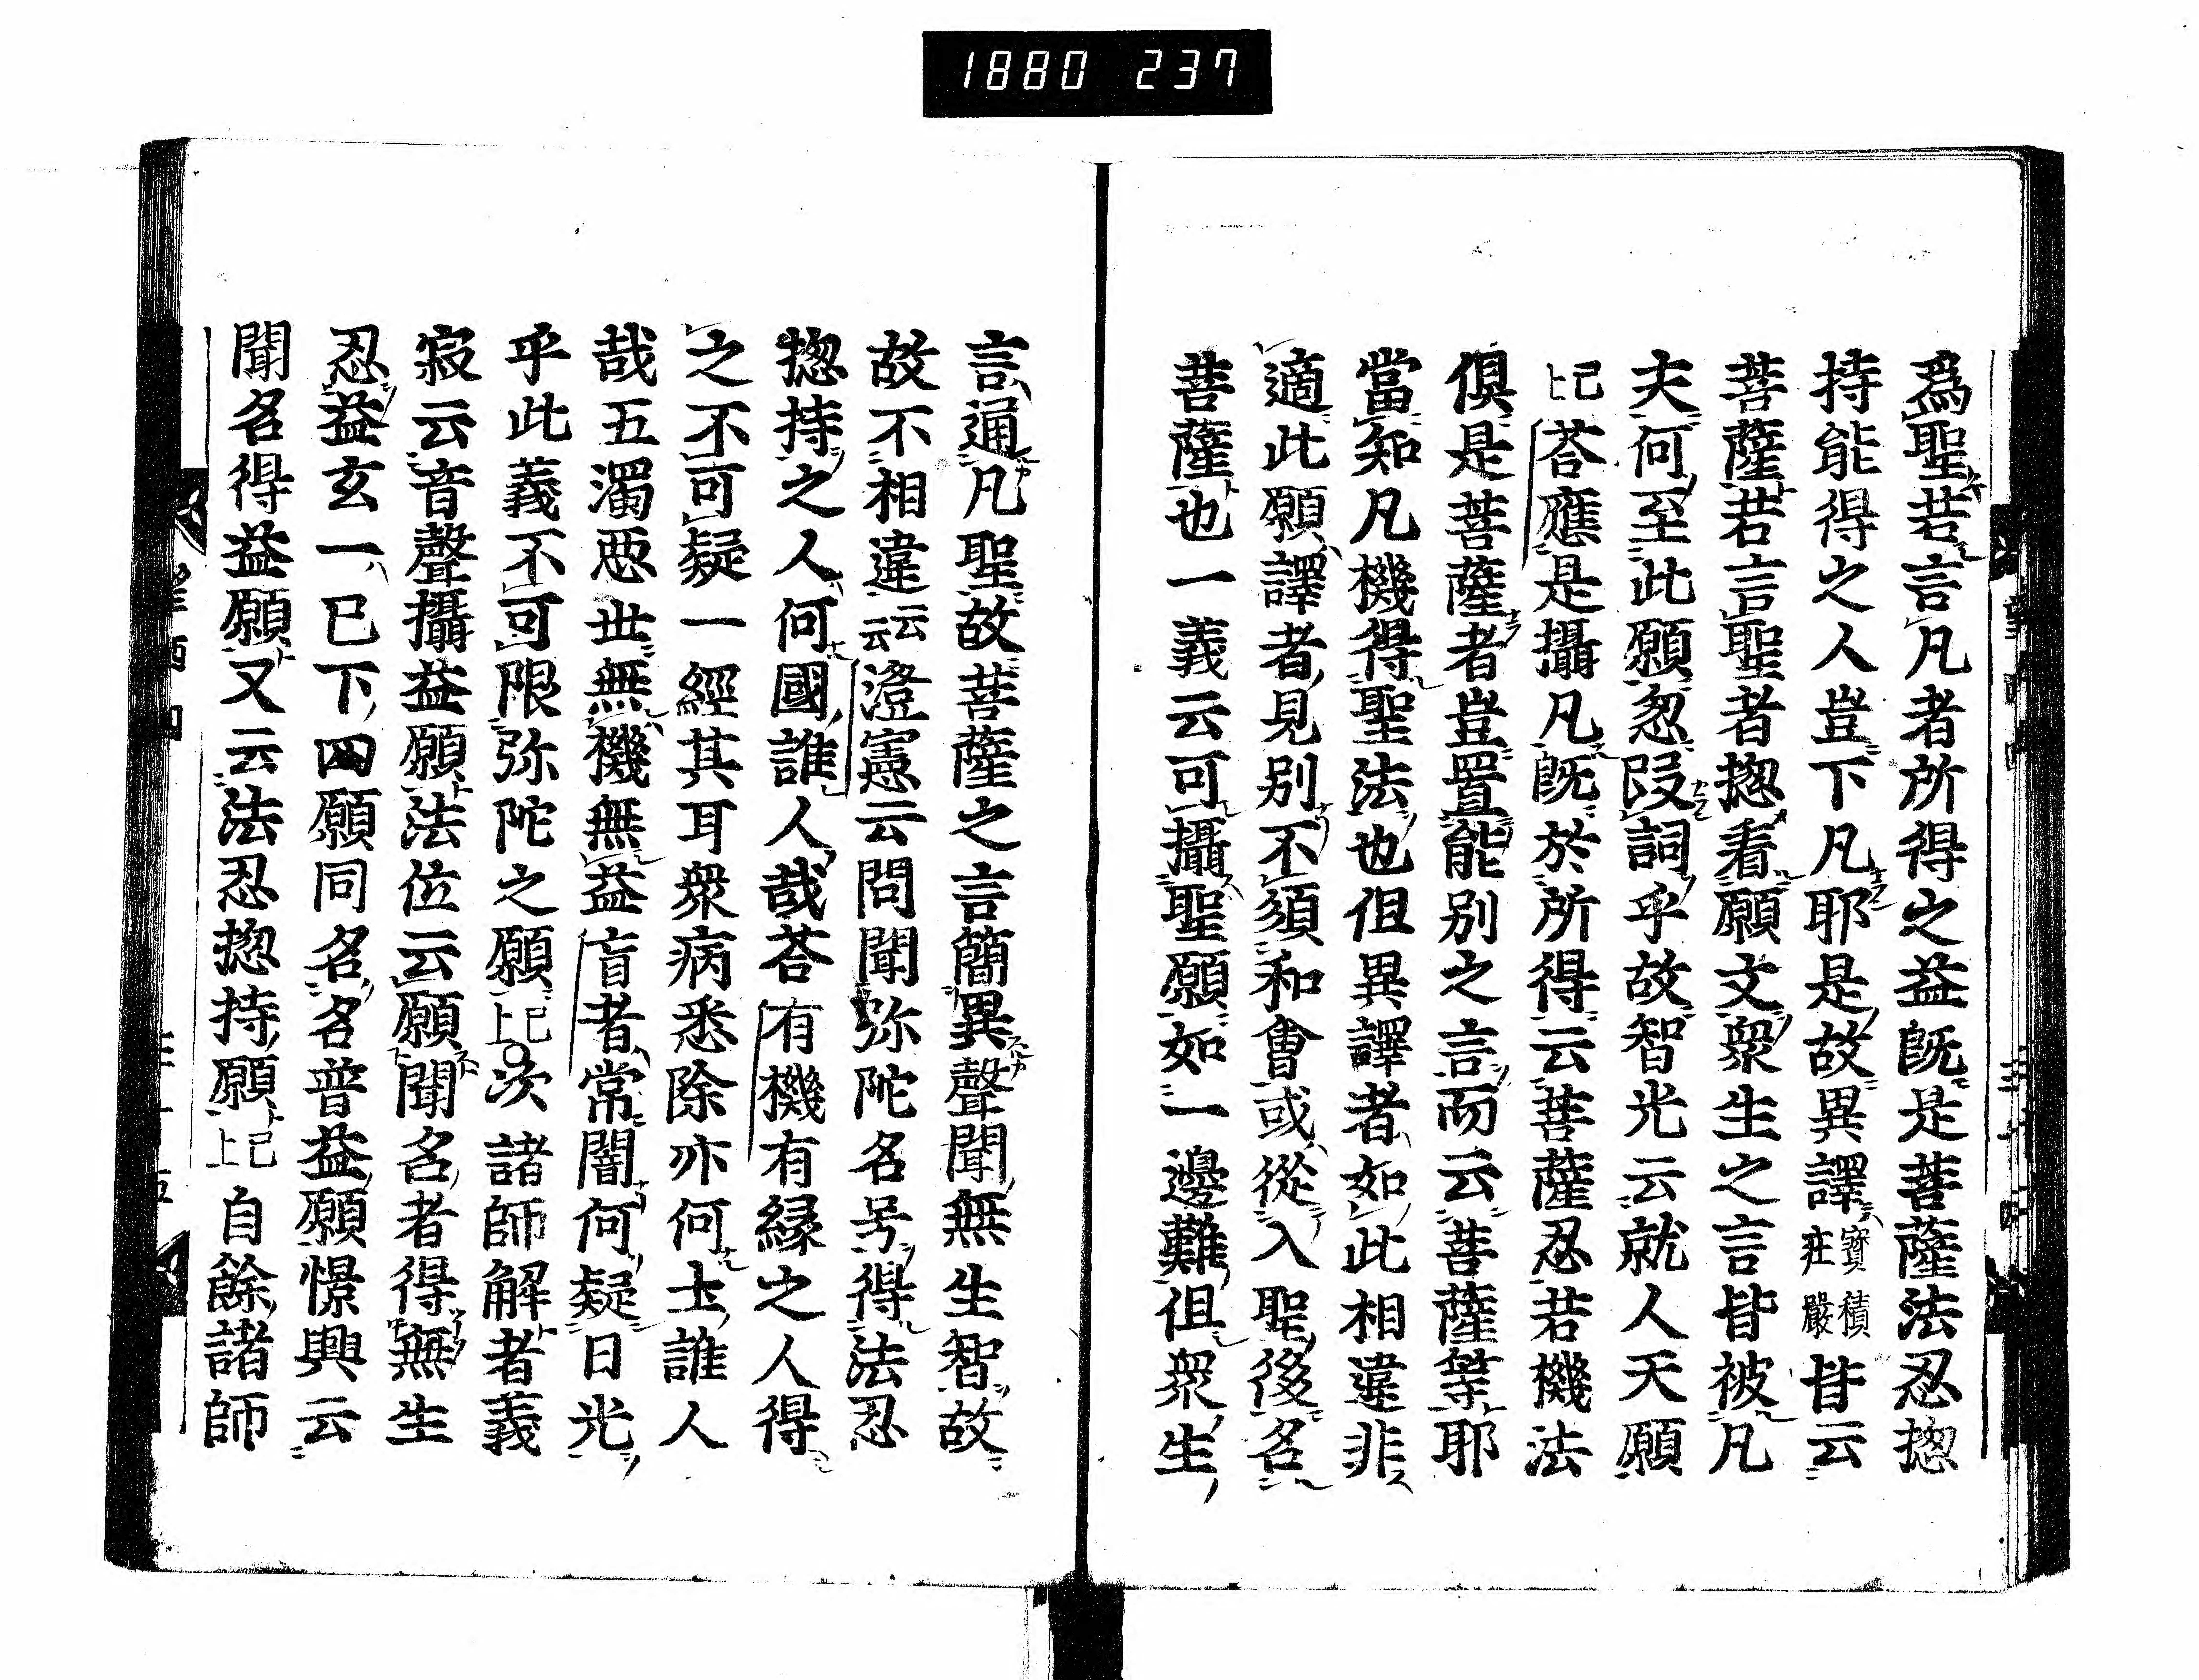 1880 237
爲聖若言凡者所得之益既是菩薩法忍揔
持能得之人豈下凡耶是故異譯寶積莊嚴皆云
菩薩若言聖者揔看願文衆生之言皆被凡
夫何至此願忽叚詞乎故智光云就人天願
已上荅應是攝凡既於所得云菩薩忍若機法
俱是菩薩者豈置能別之言而云菩薩等耶
當知凡機得聖法也但異譯者如此相違非
適此願譯者見別不須和會或從入聖後名
菩薩也一義云可攝聖願如一邊難但衆生
言通凡聖故菩薩之言簡異聲聞無生智故
故不相違云云澄憲云問聞弥陀名号得法忍
揔持之人何國誰人哉荅有機有縁之人得
之不可疑一經其耳衆病悉除亦何士誰人
哉五濁惡世無機無益盲者常闇何疑日光
乎此義不可限弥陀之願已上次諸師解者義
寂云音聲攝益願法位云願聞名者得無生
忍益玄一已下四願同名名普益願憬興云
聞名得益願又云法忍揔持願已上自餘諸師